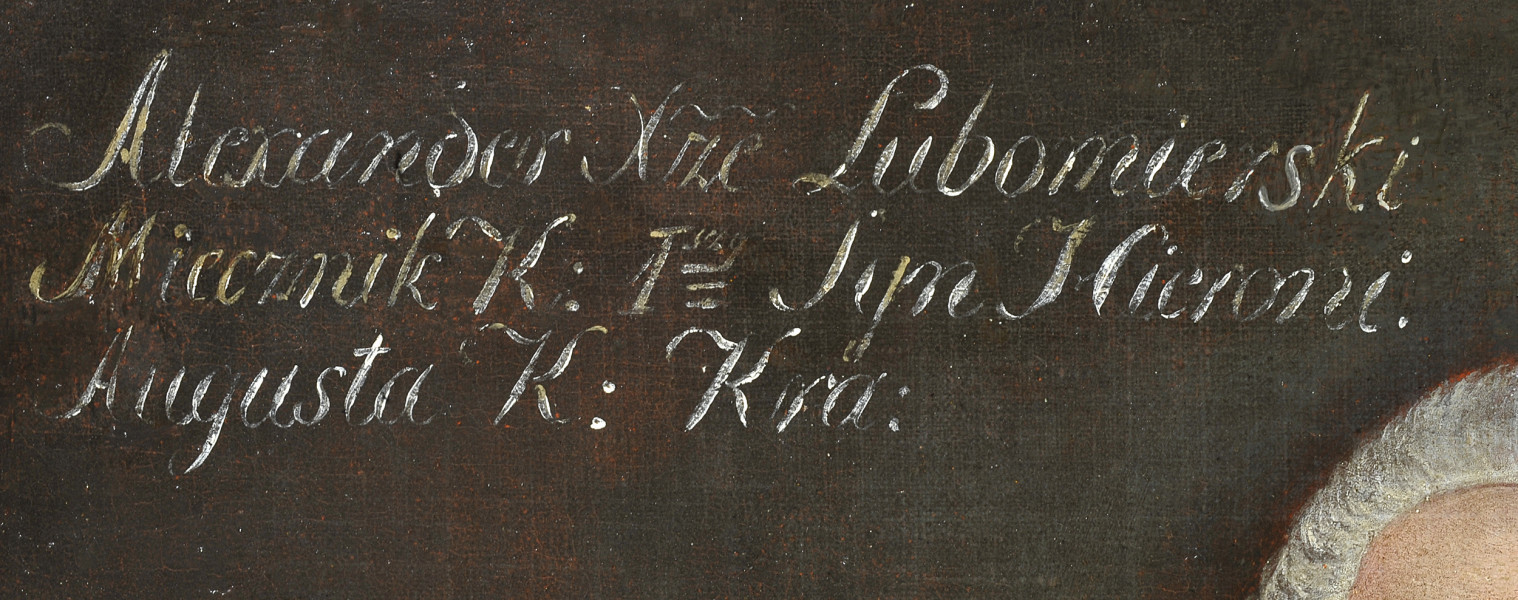 Alexander Xże Lubomierski
Miecznik K: Syn Hieroni:
Augusta K: Kra: